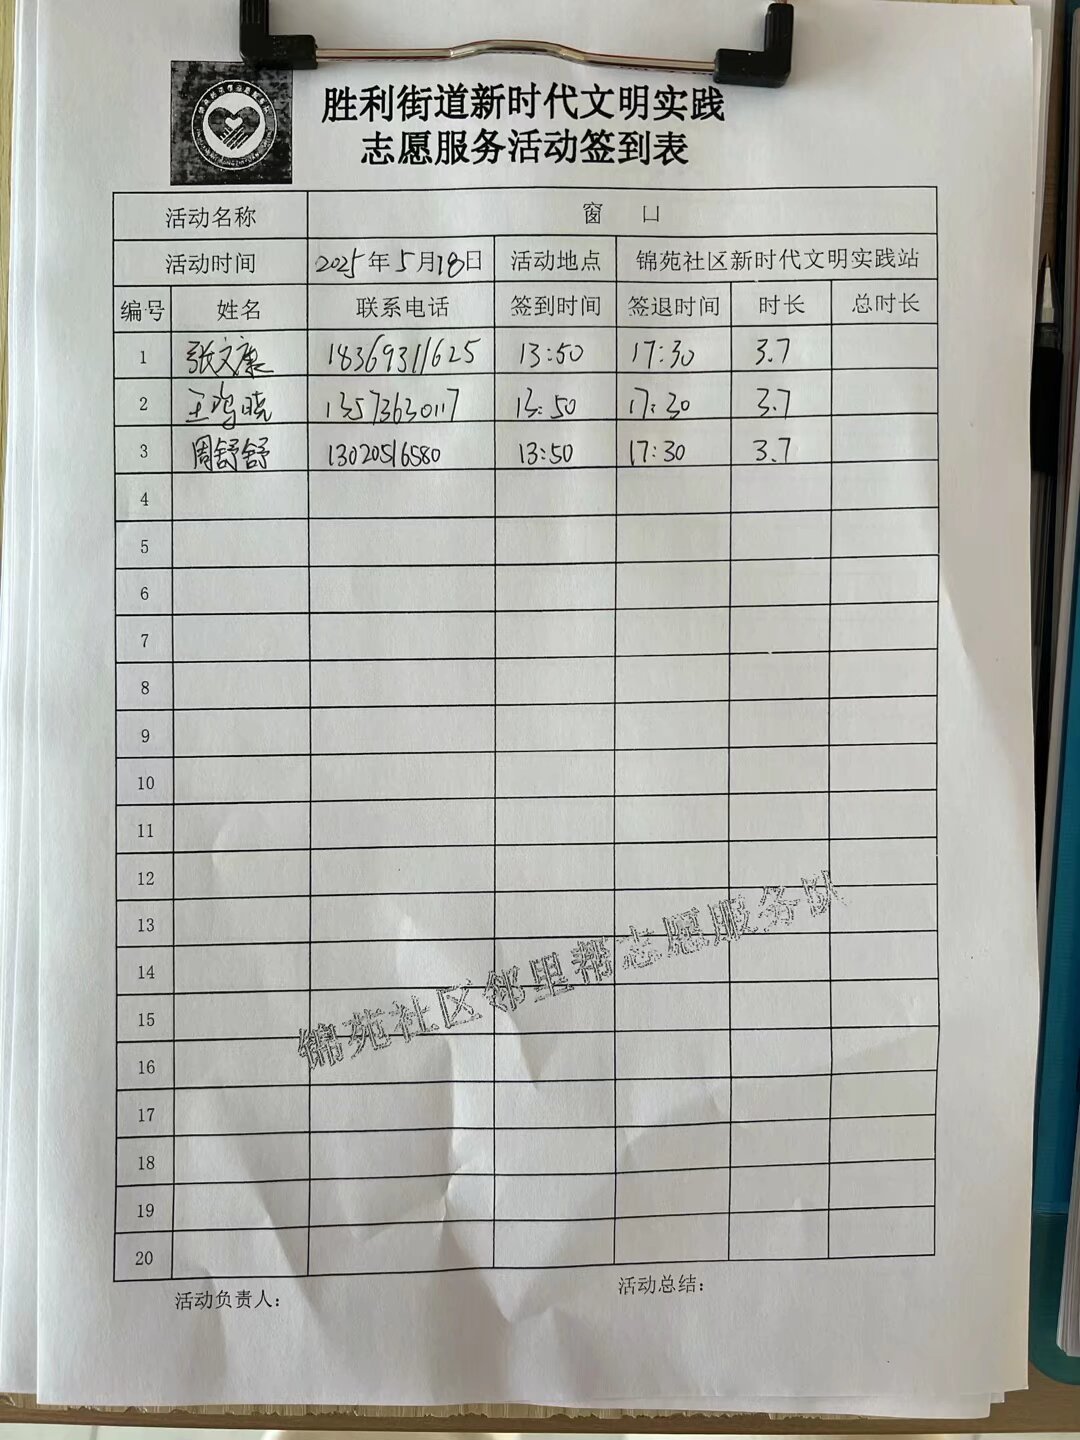 胜利街道新时代文明实践
志愿服务活动签到表
活动名称 窗 口
活动时间 2025年5月18日 活动地点 锦苑社区新时代文明实践站
编号 姓名 联系电话 签到时间 签退时间 时长 总时长
1 张文康 18369311625 13:50 17:30 3.7
2 王鸣晓 13573630117 13:50 17:30 3.7
3 周舒舒 13020516580 13:50 17:30 3.7
4
5
6
7
8
9
10
11
12
13
14
15
16
17
18
19
20
锦苑社区邻里帮志愿服务队
活动负责人： 活动总结：